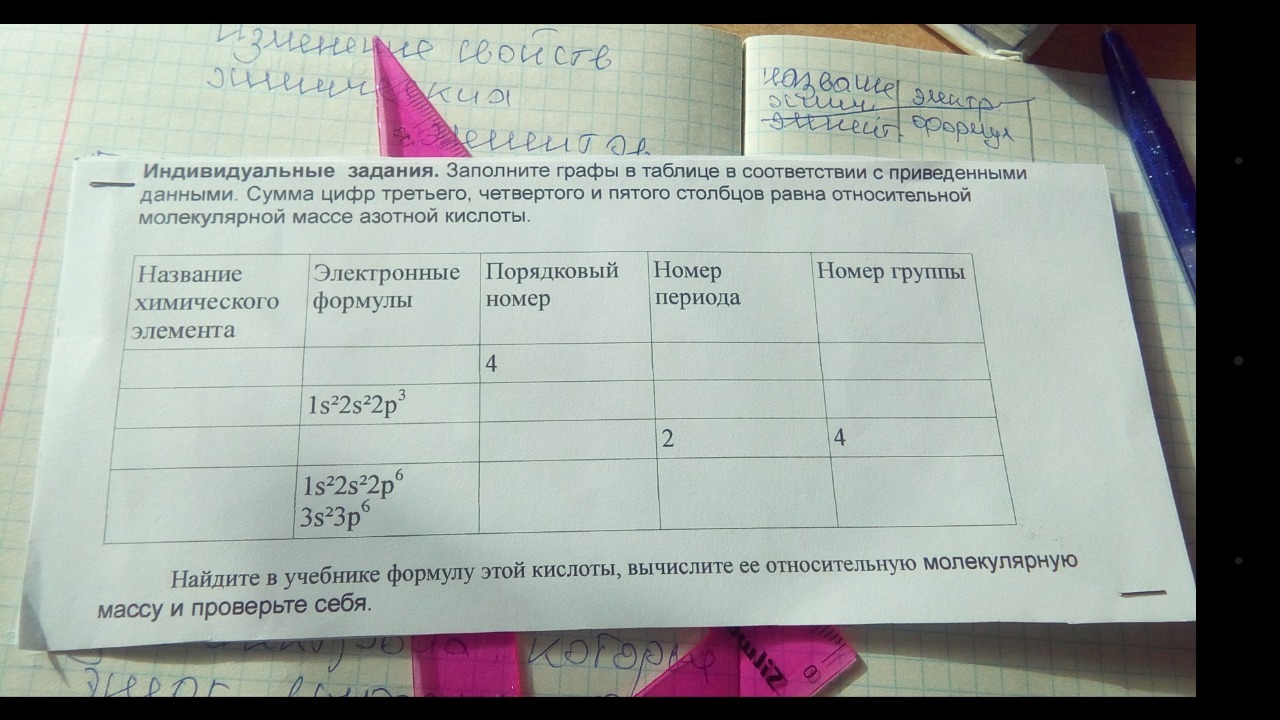 Изменение свойств
химически
элементов
название электр
химич.
элемент. формул
Индивидуальные задания. Заполните графы в таблице в соответствии с приведенными
данными. Сумма цифр третьего, четвертого и пятого столбцов равна относительной
молекулярной массе азотной кислоты.
Название химического элемента Электронные формулы Порядковый номер Номер периода Номер группы
4
1s²2s²2p³
2 4
1s²2s²2p⁶
3s²3p⁶
Найдите в учебнике формулу этой кислоты, вычислите ее относительную молекулярную
массу и проверьте себя.
которые